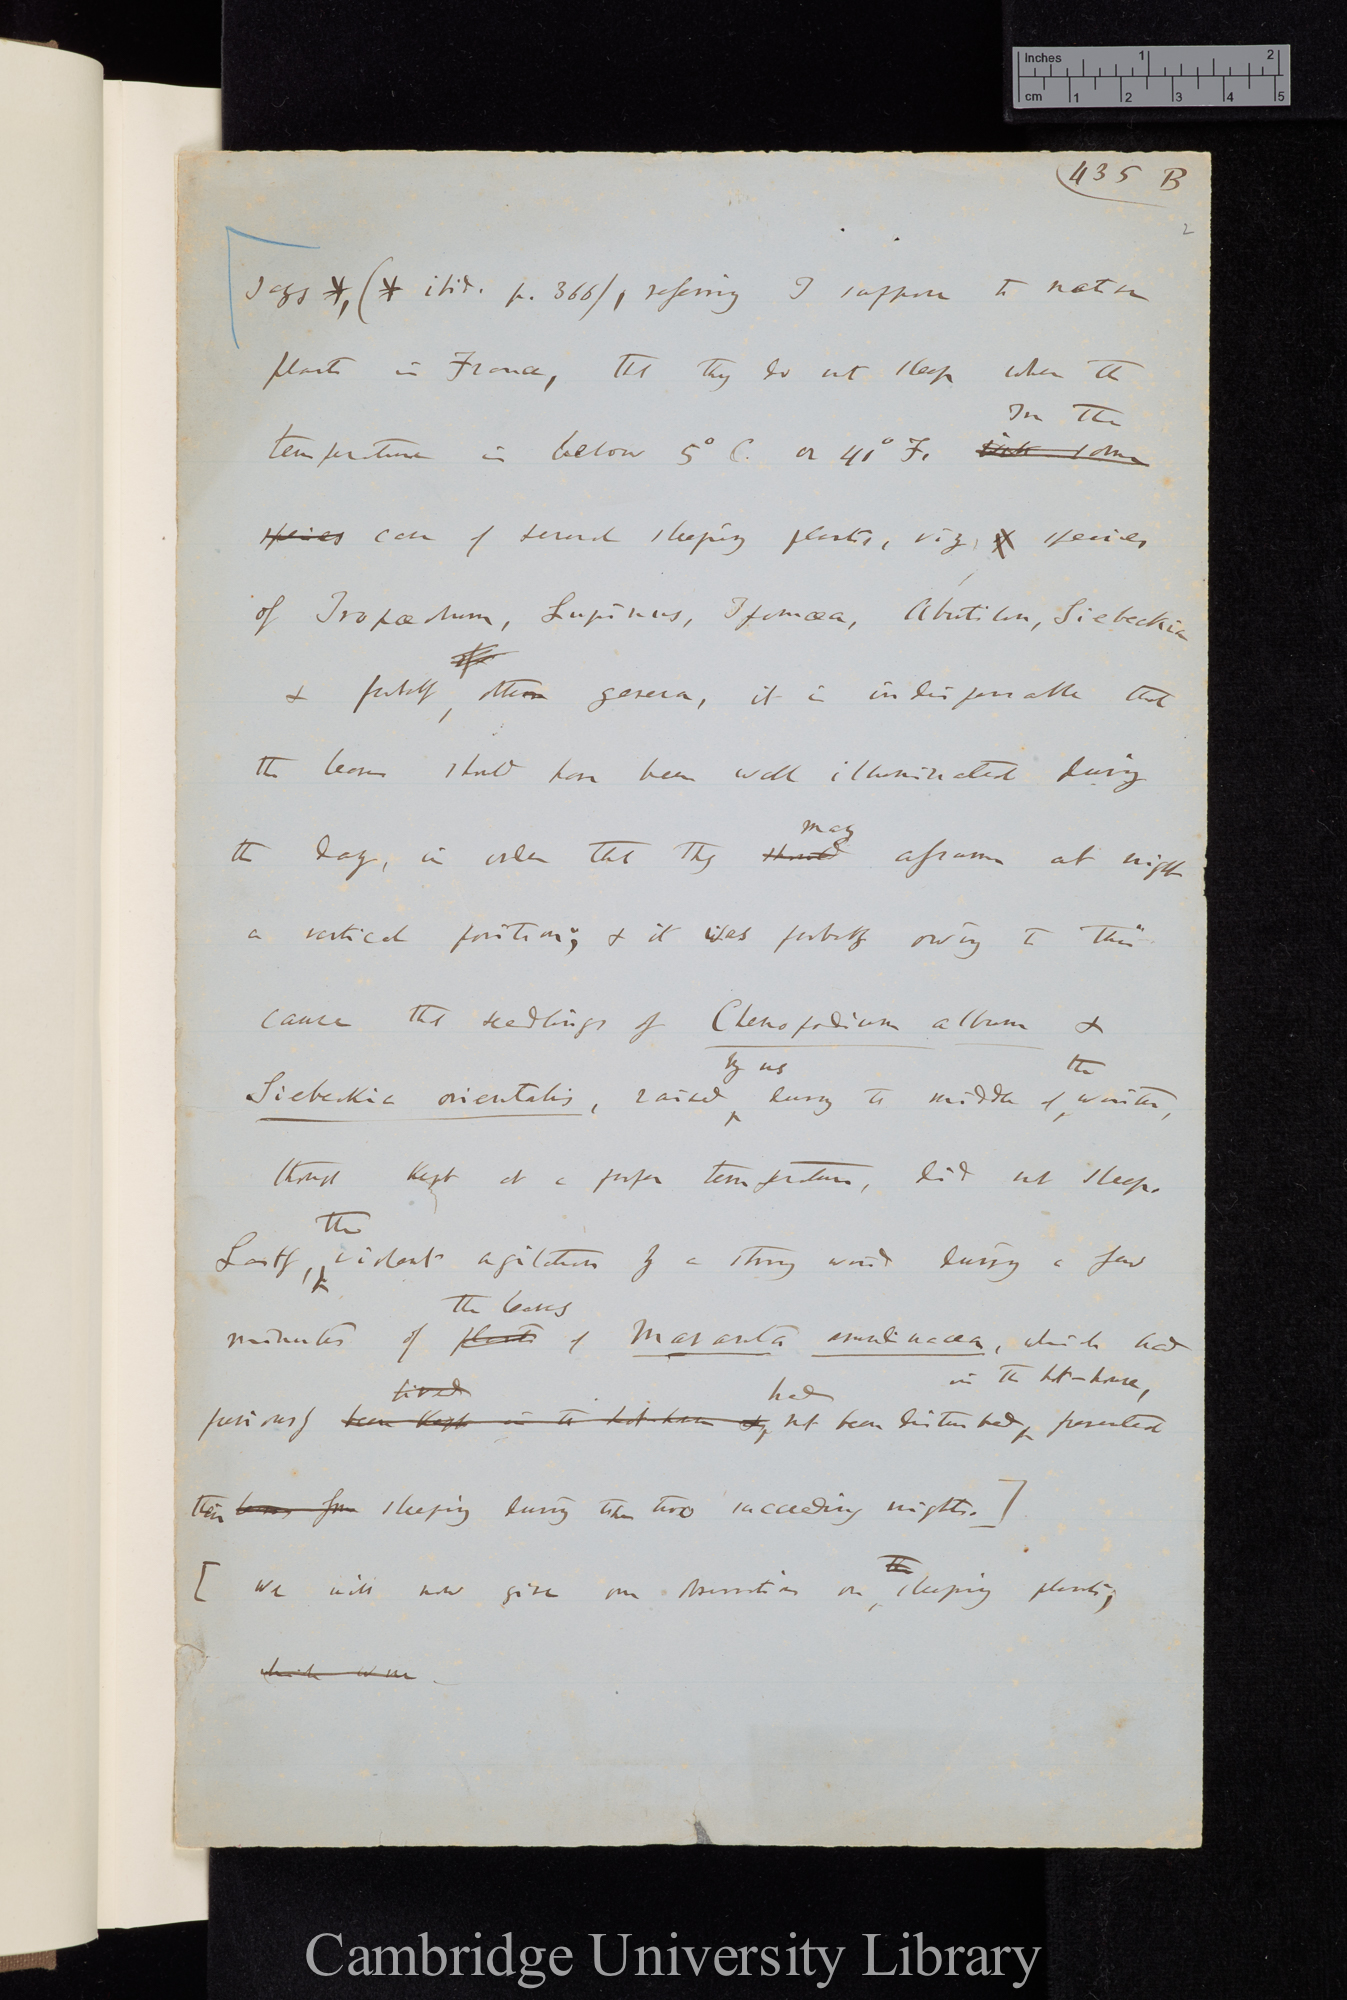 Inches 1 2
cm 1 2 3 4 5
435 B
2
says *, (* ibid. p. 366), referring I suppose to native
plants in France, that they do not sleep when the
In the
temperature is below 5° C. or 41° F. with some
species case of several sleeping plants, viz. species
of Tropæolum, Lupinus, Ipomœa, Abutilon, Siebeckia
& probably other genera, it is indispensable that
the leaves should have been well illuminated during
may
the day, in order that they should assume at night
a vertical position; & it was probably owing to this
cause that seedlings of Chenopodium album &
by us the
Siebeckia orientalis, raised during the middle of winter,
though kept at a proper temperature, did not sleep.
the
Lastly, violent agitation by a strong wind during a few
the leaves
minutes of plants of Maranta arundinacea, which had
lived had in the hot-house,
previously been kept in the hot-house & not been disturbed, prevented
their leaves from sleeping during the two succeeding nights.]
the
[We will now give our observations on sleeping plants,
which were
Cambridge University Library